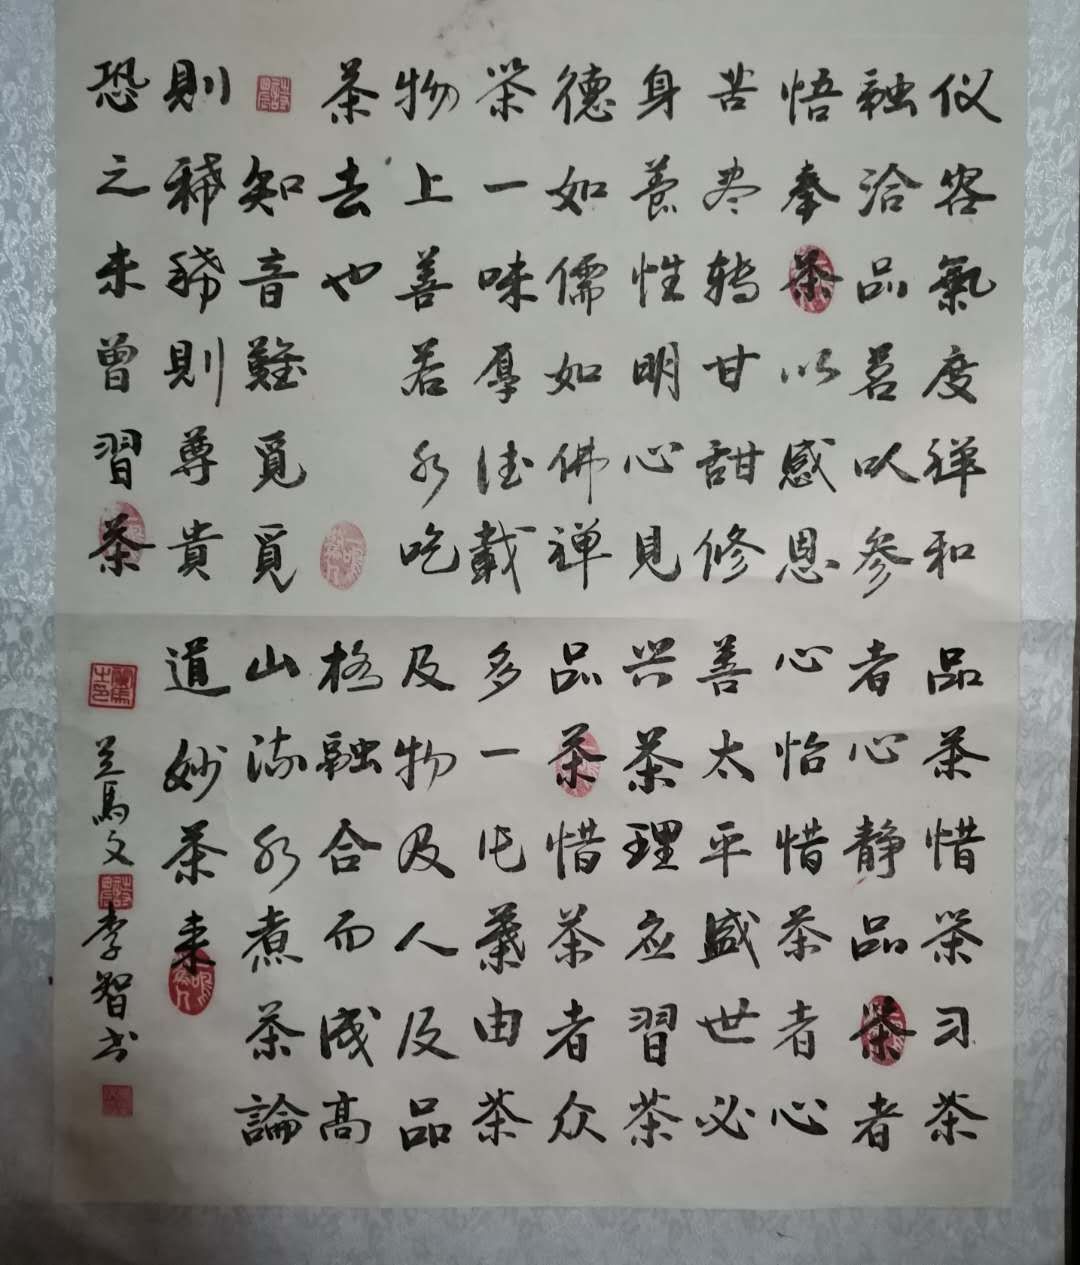 仪容氣度禅和
融洽品茗以参
悟奉茶以感恩
苦尽转甘甜修
身養性明心見
德如儒如佛禅
茶一味厚德載
物上善若水吃
茶去也
知音難覓覓
則稀稀則尊貴
恐之未曾習茶
品茶惜茶习茶
者心静品茶者
心怡惜茶者心
善太平盛世必
兴茶理应習茶
品茶惜茶者众
多一片葉由茶
及物及人及品
格融合而成高
山流水煮茶論
道妙茶来
兰馬文 李智书